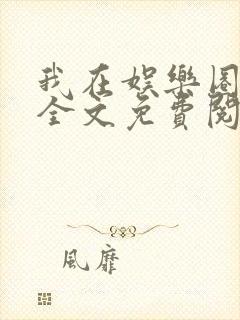 我在娛樂圈
全文免費閱
風靡